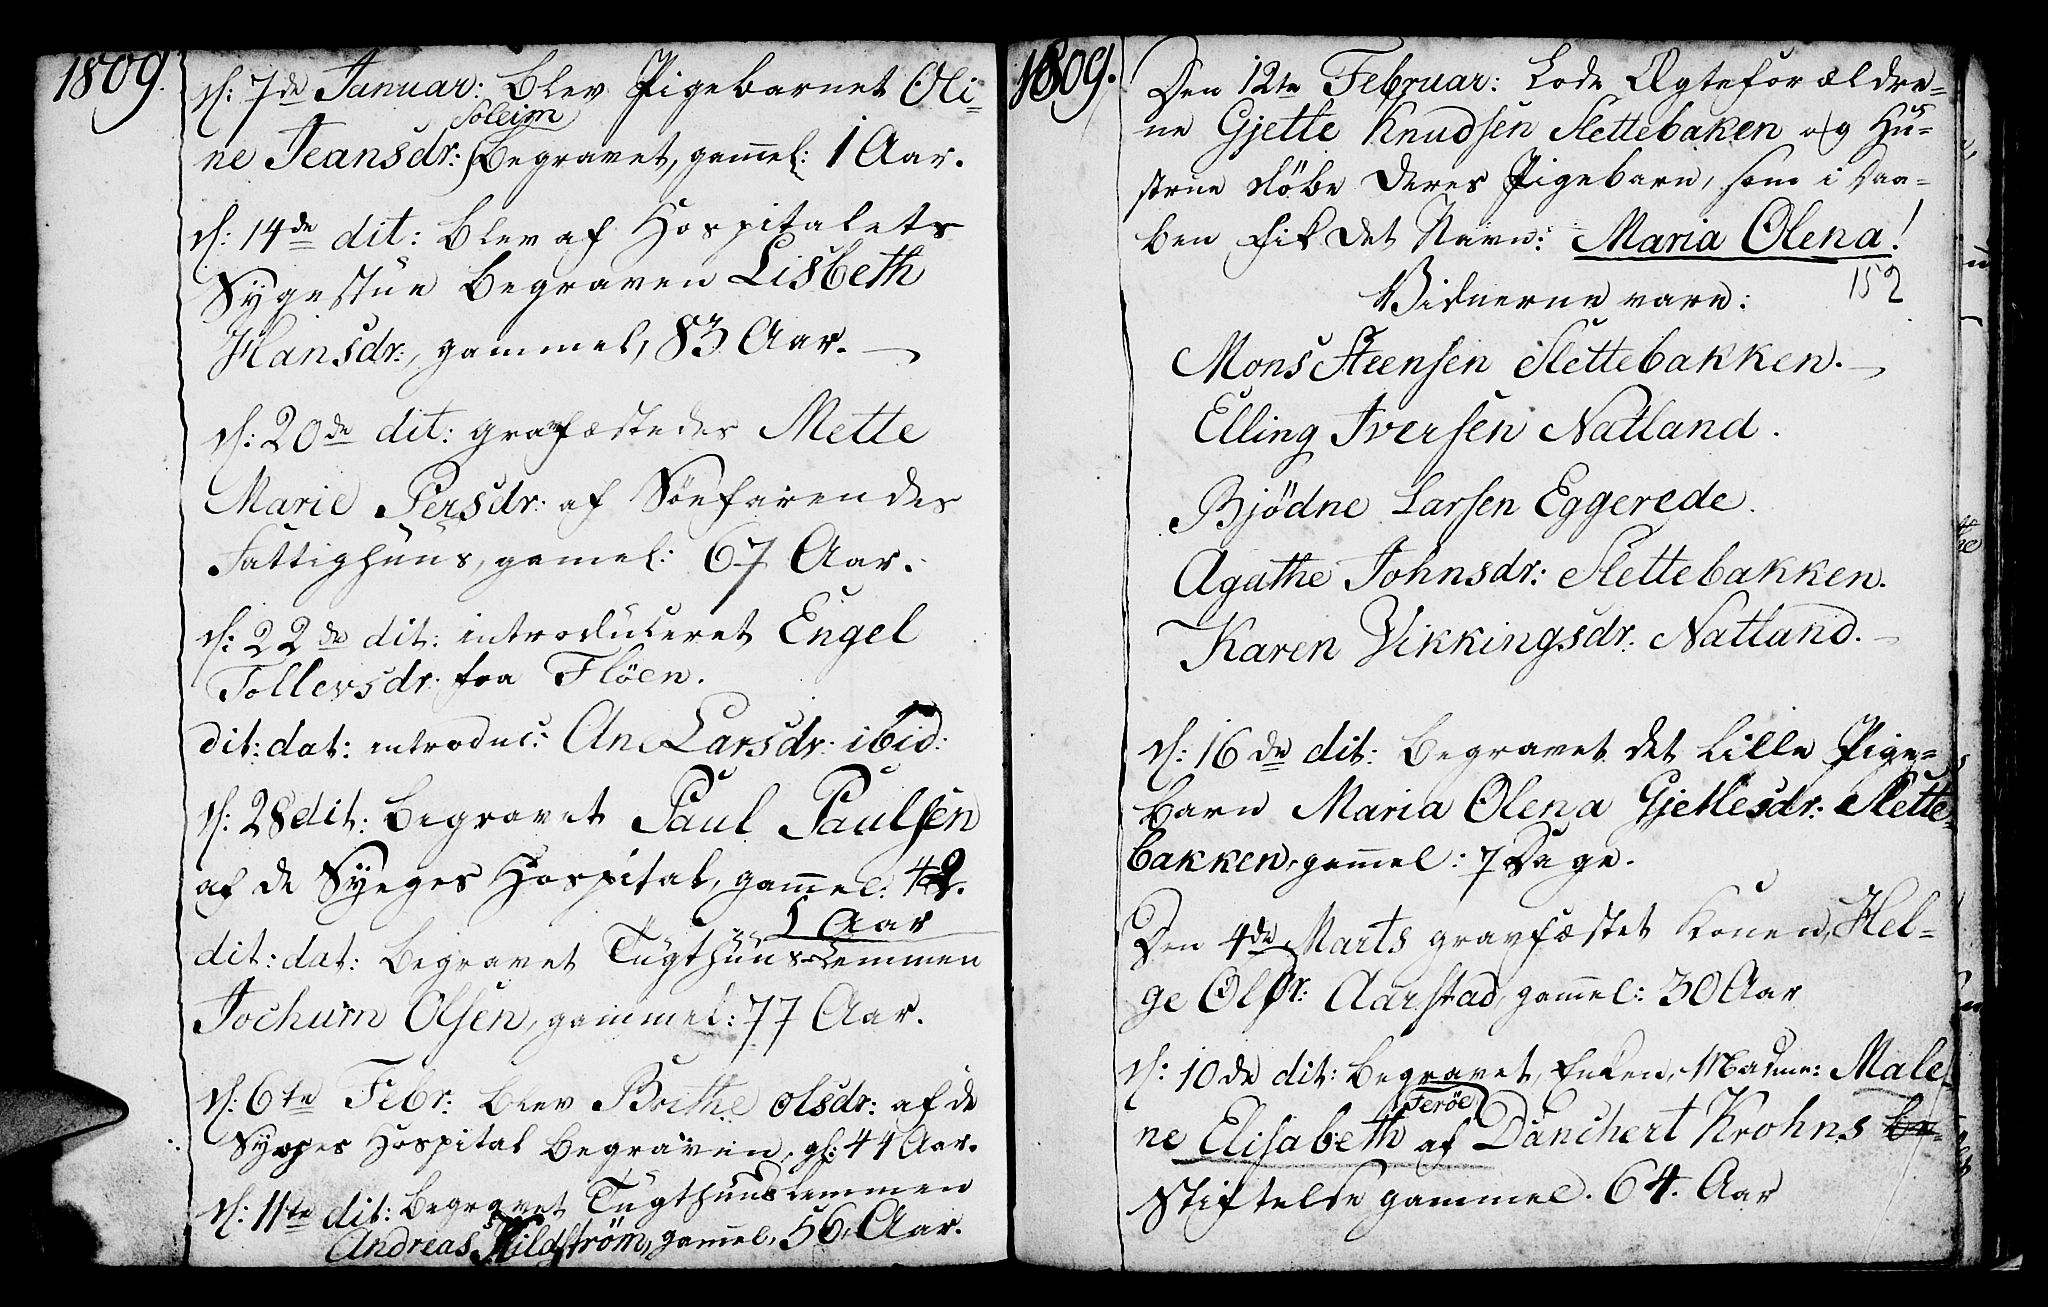 1809.
d: 7de Januar: blev Pigebarnet Oli-
Soleim
ne Jeansdr: begravet, gamel: 1 Aar.
d: 14de dit: blev af Hospitalets
Sygestue begraven Lisbeth
Hansdr:, gammel, 83 Aar. —
d: 20de dit: gravfæstedes Mette
Marie Persdr: af Söefarendes
Fattighuus, gamel: 67 Aar.
d: 22de dit: introduceret Engel
Tollevsdr: fra Flöen.
dit: dat: introduc: Ane Larsdr: ibid:
d: 28 dit: begravet Paul Paulsen
af de Syeges Hospital, gamel:
Aar
dit: dat: begravet Tugthuus-Lemmen
Jochum Olsen, gammel: 77 Aar.
d: 6te Febr: blev Brithe Olsdr: af de
Syges Hospital begraven, gl: 44 Aar.
d: 11te dit: begravet Tugthuuslemmen
Andreas Hildström, gamel, 56, Aar.
1809.
Den 12te Februar: lode Ægteforældre-
ne Gjette Knudsen Slettebaken og Hu-
strue döbe deres Pigebarn, som i Daa-
ben fik det Navn: Maria Olena!
152
Vidnerne vare:
Mons Steensen Slettebakken. —
Elling Iversen Natland.
Bjödne Larsen Eggerede.
Agathe Johnsdr: Slettebakken.
Karen Vikkingsdr: Natland. —
d: 16de dit: begravet det lille Pige-
barn Maria Olena Gjettesdr: Slette-
bakken, gamel: 7 Dage.
Den 4de Marts gravfæstet Konen, Hel-
ge Olsdr: Aarstad, gamel: 30 Aar
d: 10de dit: begravet, Enken, Madme: Male-
Feröe
ne Elisabeth af Danchert Krohns
Stiftelse gammel. 64. Aar